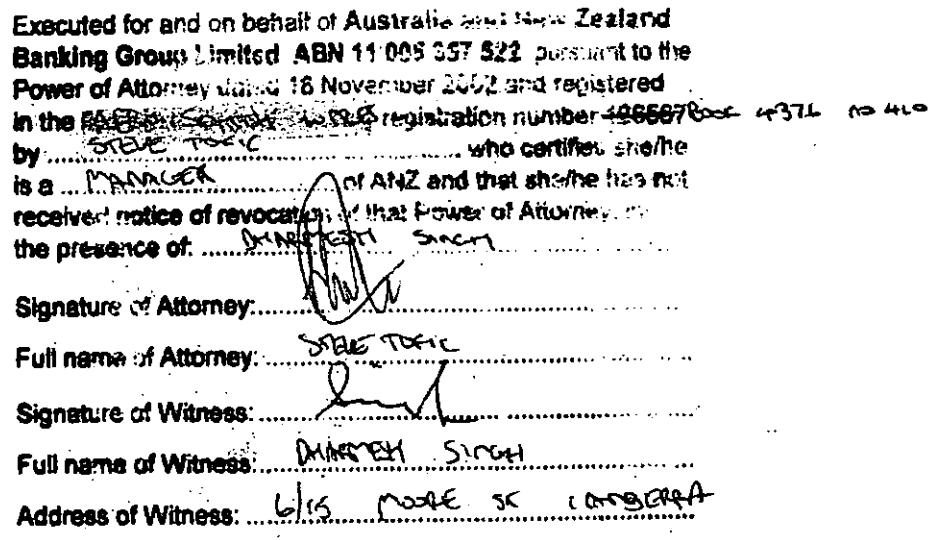 Executed for and on behalf of Australia and New Zealand
Banking Group Limited ABN 11 005 357 522 pursuant to the
Power of Attorney dated 18 November 2002 and registered
in the registration number 126587 BOOK 4376 NO 410
by STEVE TOFIC who certifies she/he
is a MANAGER of ANZ and that she/he has not
received notice of revocation of that Power of Attorney, in
the presence of: DHARMESH SINGH
Signature of Attorney:
Full name of Attorney: STEVE TOFIC
Signature of Witness:
Full name of Witness: DHARMESH SINGH
Address of Witness: 6/15 MOORE ST CANBERRA